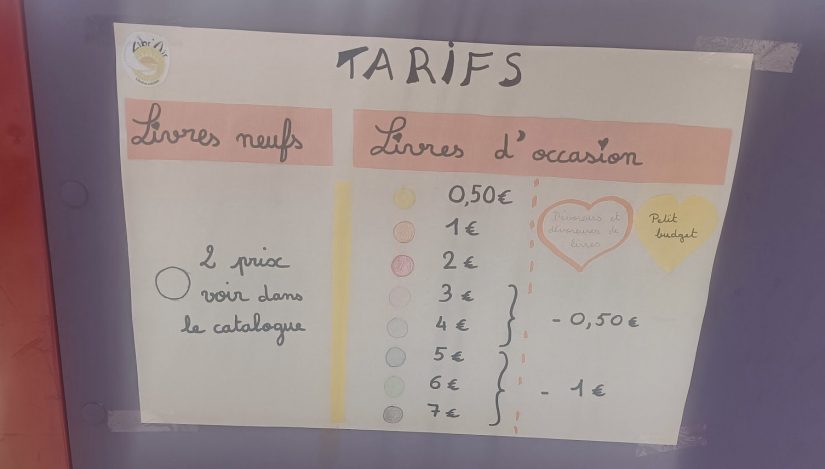 Libr'Air
TARIFS
Livres neufs
2 prix
voir dans
le catalogue
Livres d'occasion
0,50€
1€
2€
3€
4€
5€
6€
7€
- 0,50€
- 1€
Dévoreurs et
dévoreuses de
livres
Petit
budget